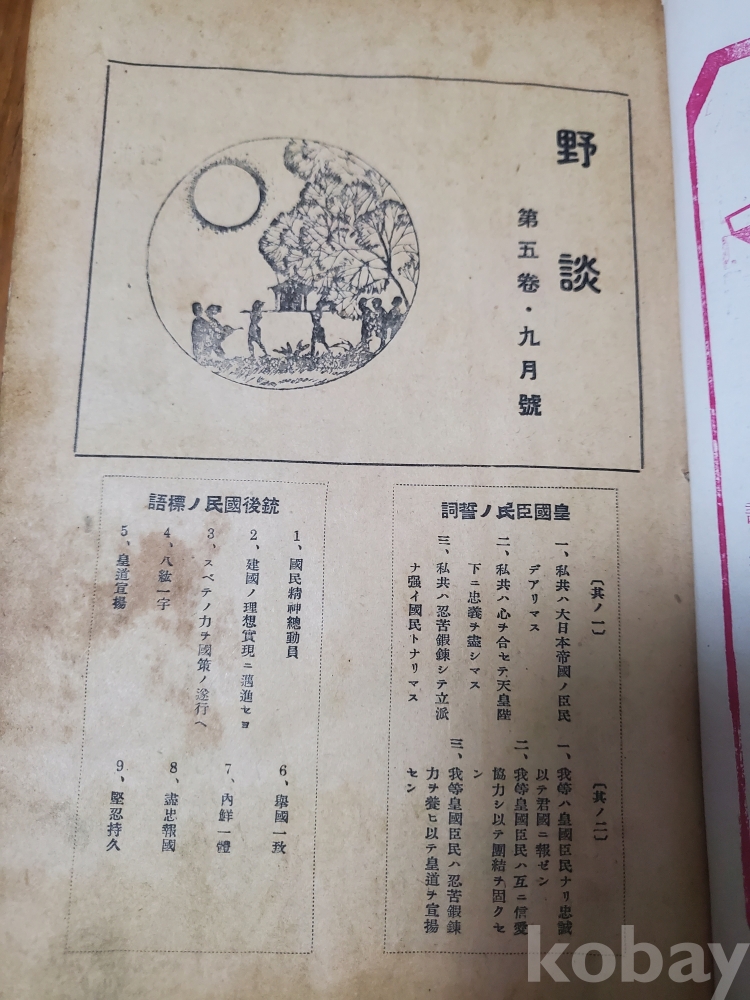 野談
第五卷・九月號
皇國臣民ノ誓詞
〔其ノ一〕
一、私共ハ大日本帝國ノ臣民
デアリマス
二、私共ハ心ヲ合セテ天皇陛
下ニ忠義ヲ盡シマス
三、私共ハ忍苦鍛錬シテ立派
ナ强イ國民トナリマス
〔其ノ二〕
一、我等ハ皇國臣民ナリ忠誠
以テ君國ニ報ゼン
二、我等皇國臣民ハ互ニ信愛
協力シ以テ團結ヲ固クセ
ン
三、我等皇國臣民ハ忍苦鍛錬
力ヲ養ヒ以テ皇道ヲ宣揚
セン
銃後國民ノ標語
1、國民精神總動員
2、建國ノ理想實現ニ邁進セヨ
3、スベテノ力ヲ國策ノ遂行ヘ
4、八紘一字
5、皇道宣揚
6、擧國一致
7、內鮮一體
8、盡忠報國
9、堅忍持久
kobay